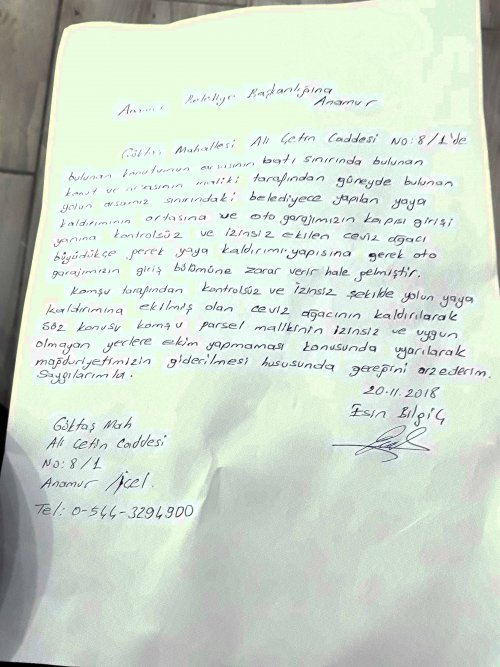 Anamur Belediye Başkanlığına
Anamur
Göktaş Mahallesi Ali Çetin Caddesi No: 8/1'de
bulunan konutumun arsasının batı sınırında bulunan
konut ve arsasının maliki tarafından güneyde bulunan
yolun arsamız sınırındaki belediyece yapılan yaya
kaldırımının ortasına ve oto garajımızın kapısı girişi
yanına kontrolsüz ve izinsiz ekilen ceviz ağacı
büyüdükçe gerek yaya kaldırımı yapısına gerek oto
garajımızın giriş bölümüne zarar verir hale gelmiştir.
Komşu tarafından kontrolsüz ve izinsiz şekilde yolun yaya
kaldırımına ekilmiş olan ceviz ağacının kaldırılarak
söz konusu komşu parsel malikinin izinsiz ve uygun
olmayan yerlere ekim yapmaması konusunda uyarılarak
mağduriyetimizin giderilmesi hususunda gereğini arz ederim.
Saygılarımla.
20.11.2018
Esin Bilgiç
Göktaş Mah
Ali Çetin Caddesi
No: 8/1
Anamur / İçel.
Tel: 0-544-3294900